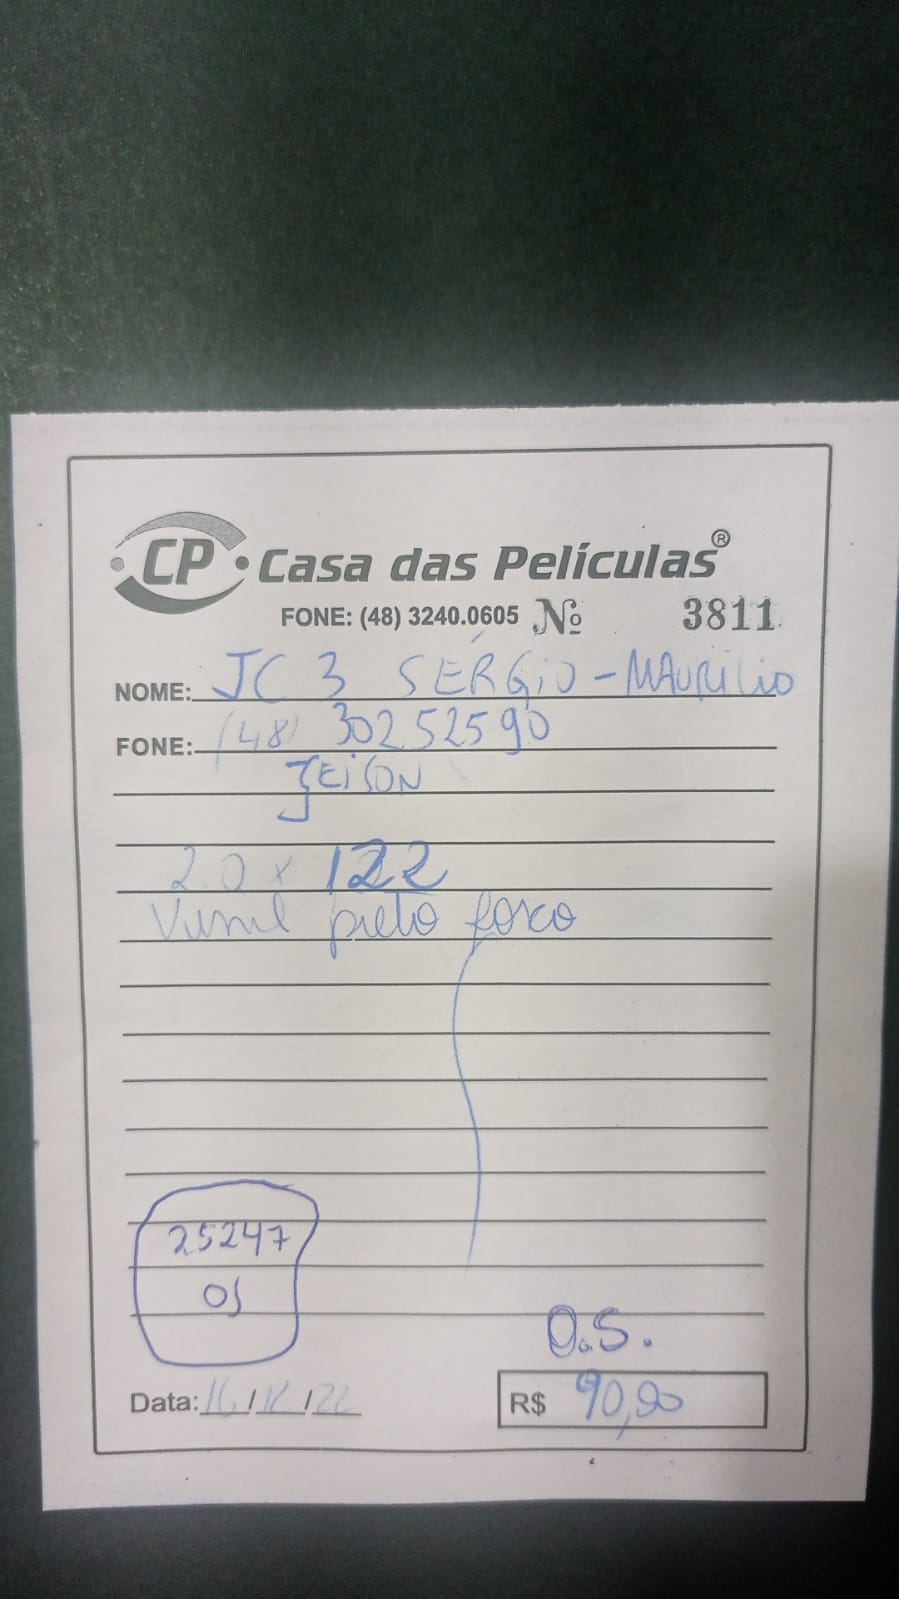 CP Casa das Películas®
FONE: (48) 3240.0605 Nº 3811
NOME: JC 3 SÉRGIO - MAURILIO
FONE: (48) 30252590
JEISON
2.0 x 122
Vinil preto fosco
25247
OS
O.S.
Data: 16/12/22
R$ 90,90